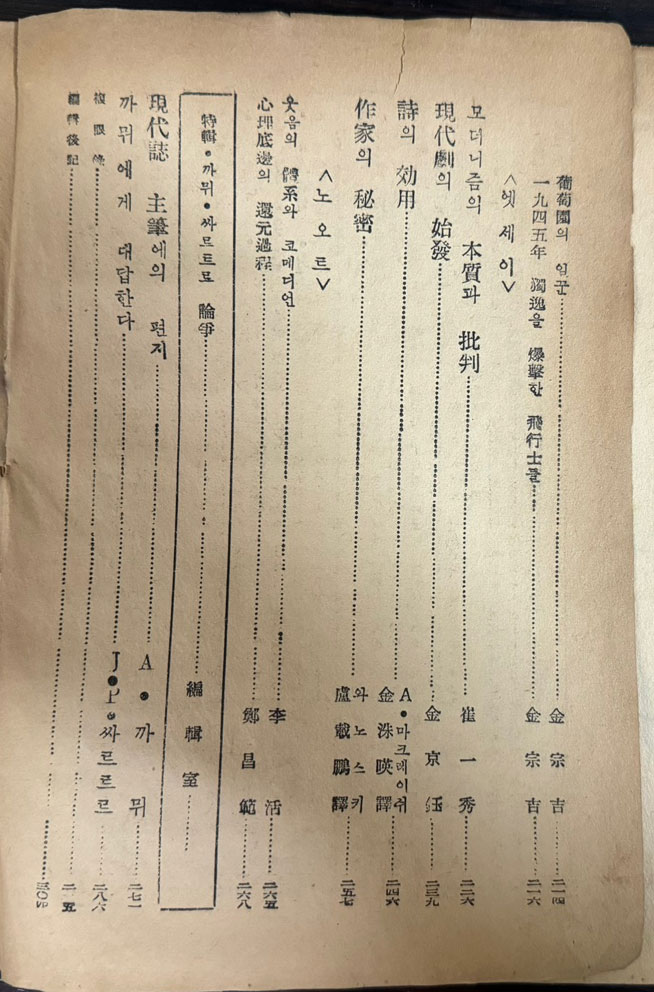 葡萄園의 일꾼 金宗吉 二一四
一九四五年 獨逸을 爆擊한 飛行士들 金宗吉 二一六
<엣세이>
모더니즘의 本質과 批判 崔一秀 二二六
現代劇의 始發 金京鈺 二三九
詩의 効用 A•마크레이쉬 金洙暎譯 二四六
作家의 秘密 와노스키 盧戱鵬譯 二五七
<노오트>
웃음의 體系와 코메디언 李活 二六五
心理底邊의 還元過程 鄭昌範 二六八
特輯•까뮈•싸르트르 論爭 編輯室
現代誌 主筆에의 편지 A•까뮈 二七一
까뮈에게 대답한다 J•P•싸르르르 二八六
複眼 二 五
編輯後記